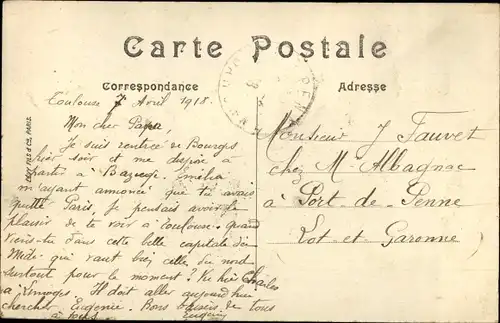 Carte Postale
Correspondance
Adresse
Toulouse 7 Avril 1918.
Mon cher Papa,
Je suis rentrée de Bourges
hier soir et me dispose à
partir à Emélia
m'ayant annoncé que tu avais
quitté Paris, Je pensais avoir le
plaisir de te voir à Toulouse. Quand
viens-tu dans cette belle capitale du
Midi qui vaut bien celles du nord
surtout pour le moment? hier Charles
a Limoges. Il doit aller aujourd'hui
chercher Eugénie. Bons baisers de tous
à tous
Monsieur J Fauvet
chez M. Albagnac
à Port-de-Penne
Lot-et-Garonne